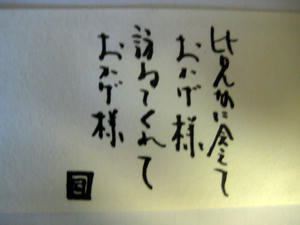 皆んなに会えて
おかげ様
訪ねてくれて
おかげ様